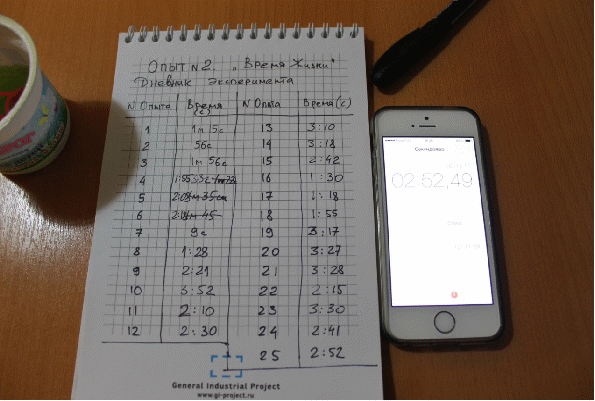 Опыт N2. „Время Жизни"
Дневник эксперимента
N Опыта Время (с) N Опыта Время (с)
1 1м 15с 13 3:10
2 56с 14 3:18
3 1м 56с 15 2:42
4 16 1:30
5 17 1:18
6 18 1:55
7 9с 19 3:17
8 1:28 20 3:27
9 2:21 21 3:28
10 3:52 22 2:15
11 2:10 23 3:30
12 2:30 24 2:41
25 2:52
General Industrial Project
www.gi-project.ru
Секундомер
02:52,49